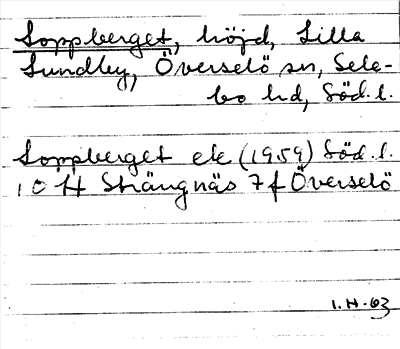 Soppberget, höjd, Lilla
Lundby, Överselö sn, Sele-
bo hd, Söd. l.
Soppberget ek (1959) Söd. l.
10 H Strängnäs 7 f Överselö
I.H. 63